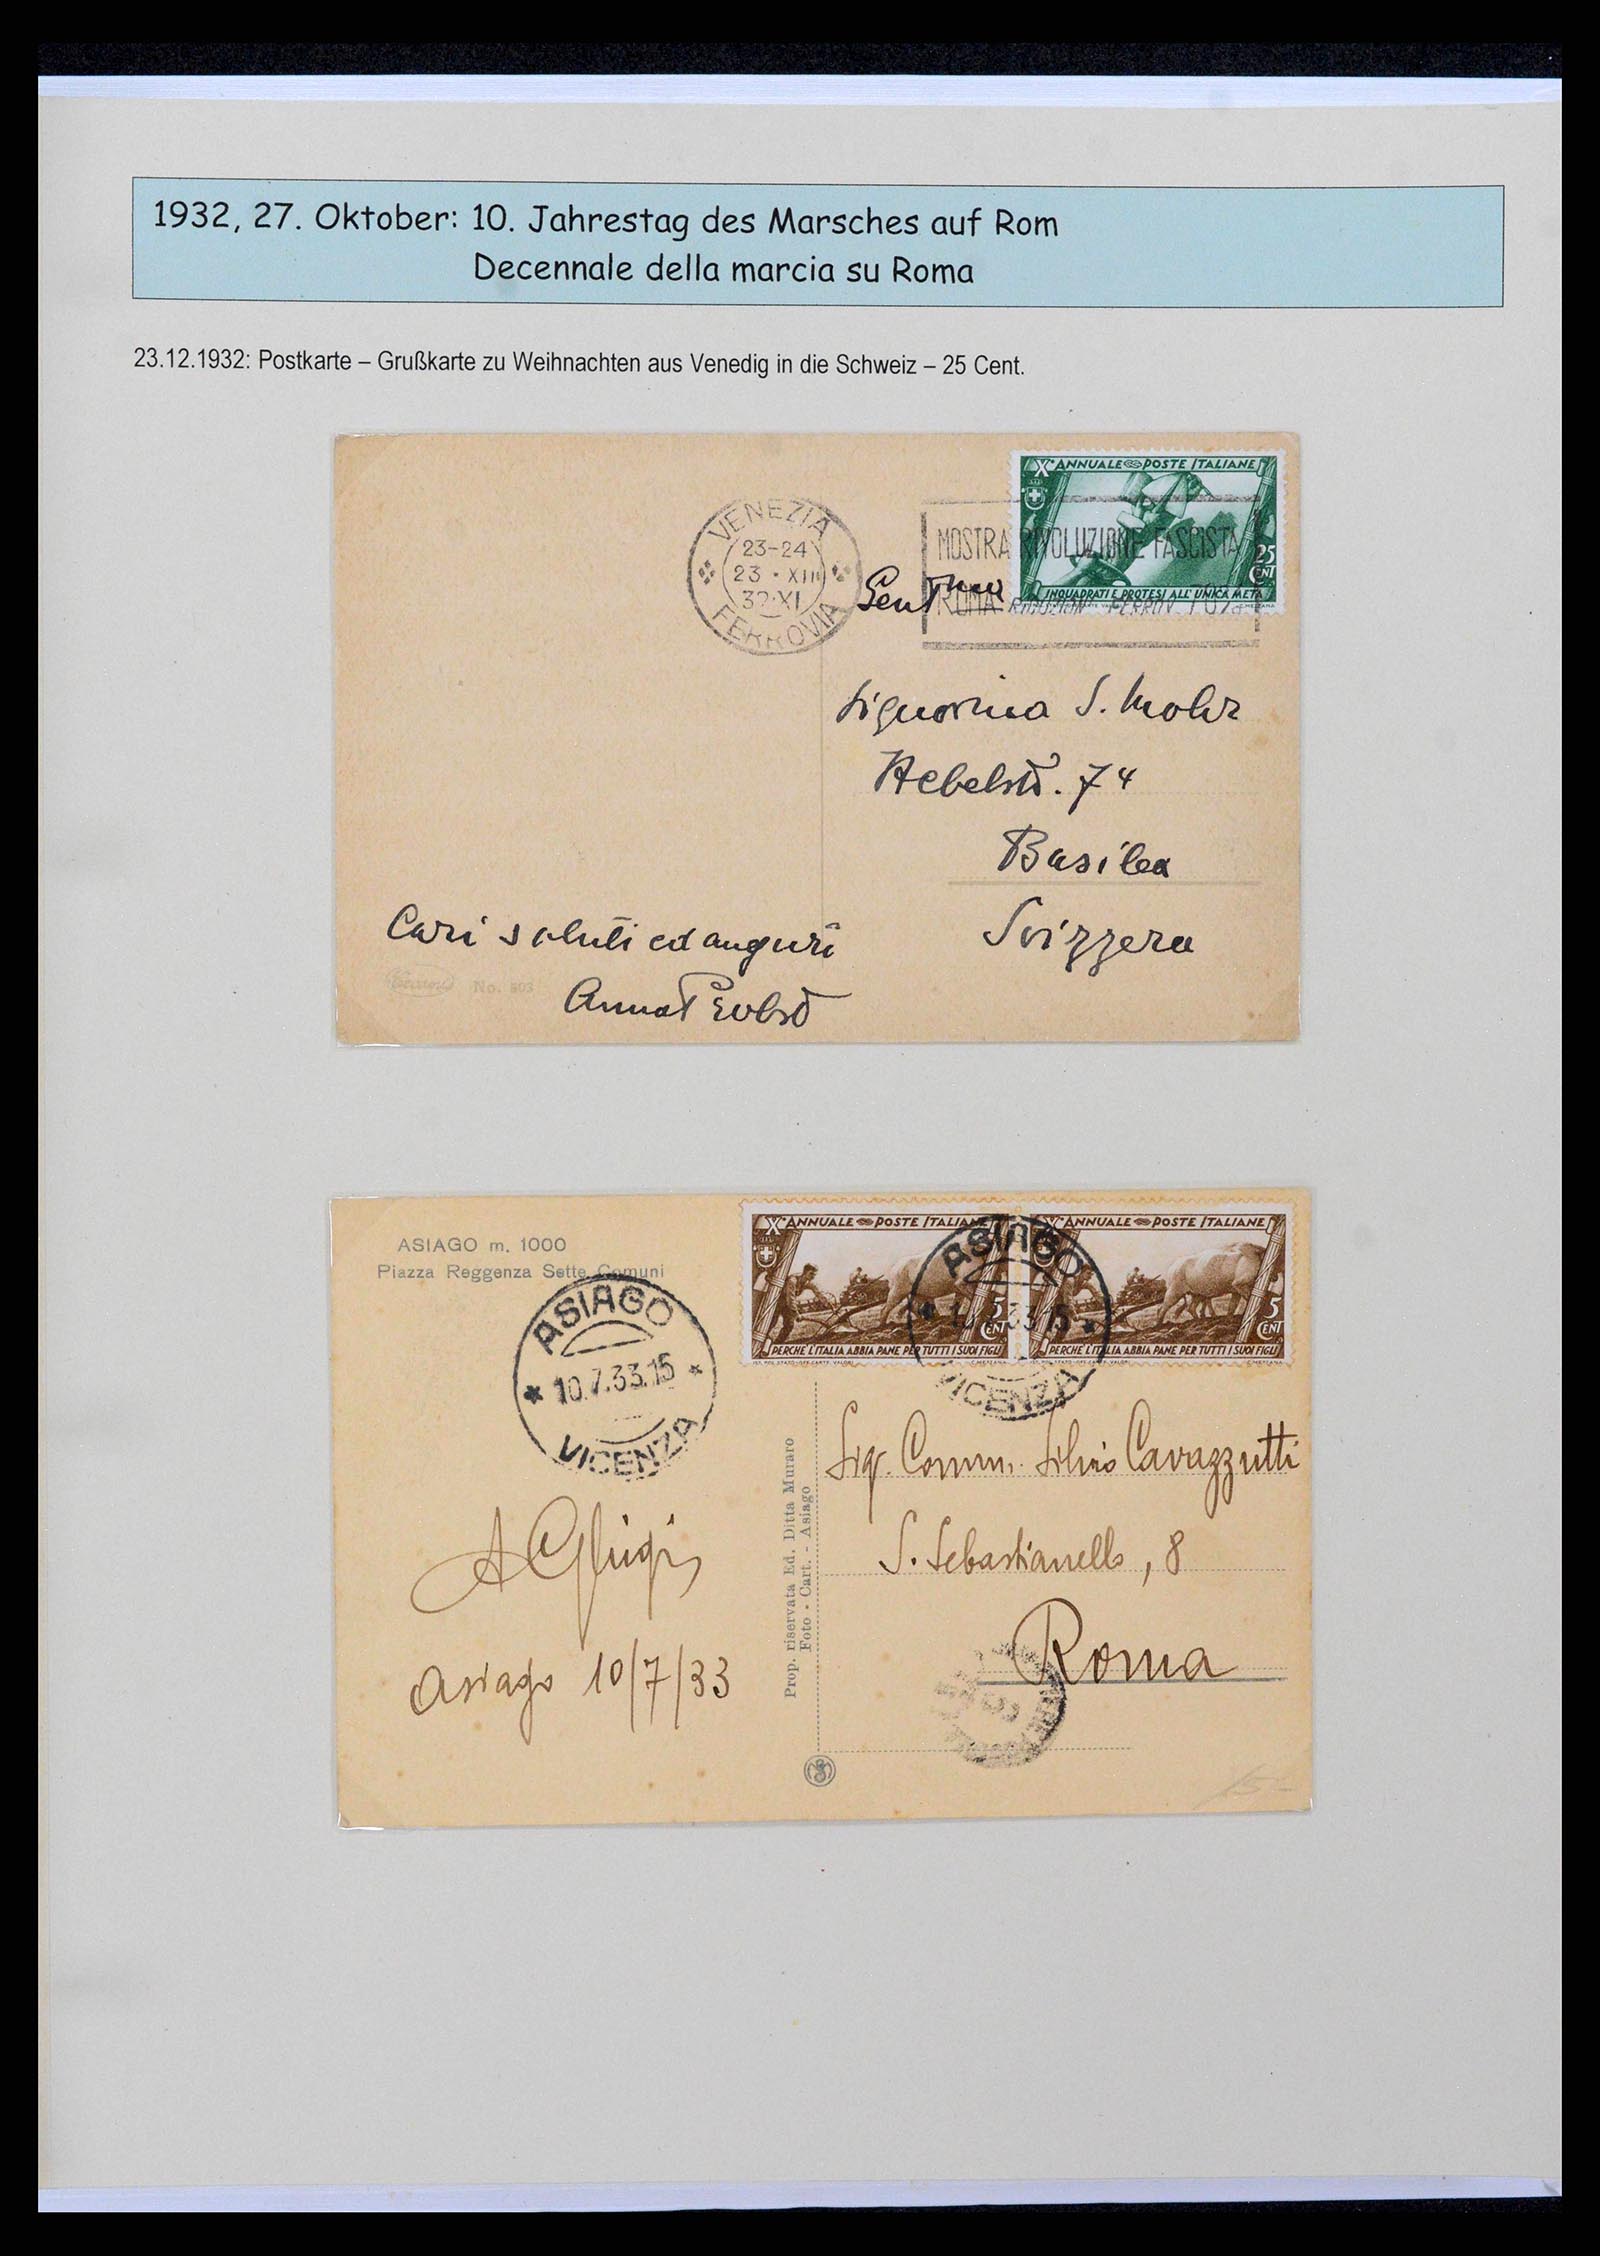 1932, 27. Oktober: 10. Jahrestag des Marsches auf Rom
Decennale della marcia su Roma
23.12.1932: Postkarte – Grußkarte zu Weihnachten aus Venedig in die Schweiz – 25 Cent.
X° ANNUALE POSTE ITALIANE
25
CENT
INQUADRATI E PROTESI ALL'UNICA META
VENEZIA
23-24
23 · XII
32·XI
FERROVIA
MOSTRA RIVOLUZIONE FASCISTA
ROMA RIDUZIONI FERROV. 70%
Signorina S. Mohr
Hebelstr. 74
Basilea
Svizzera
Cari saluti ed auguri
Anna
No. 803
ASIAGO m. 1000
Piazza Reggenza Sette Comuni
X° ANNUALE POSTE ITALIANE
5
CENT
PERCHÈ L'ITALIA ABBIA PANE PER TUTTI I SUOI FIGLI
IST. POL. STATO-OFF. CARTE VALORI
X° ANNUALE POSTE ITALIANE
5
CENT
PERCHÈ L'ITALIA ABBIA PANE PER TUTTI I SUOI FIGLI
C. MEZZANA
ASIAGO
10.7.33.15
VICENZA
ASIAGO
10.7.33.15
VICENZA
Sig. Comm. Silvio Cavazzutti
S. Sebastianello, 8
Roma
Asiago 10/7/33
Prop. riservata Ed. Ditta Muraro
Foto - Cart. - Asiago